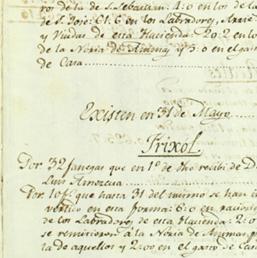 ros de la de S. Sebastian: 4:0 en los de la
de S. José: 61:6 en los Labradores,
y Viudas de esta Hacienda: 20:2 en los
de la Noria de Anemas, y 5:0 en el gas
de Casa
Existen en 31 de Mayo
Frixol
Por 32 fanegas que en 1º de Dho recibí de D
Luis Amorena
Por 10 f. que hasta 31 del mismo se han in
vertido en esta forma: 6:0 en raciones
de los Labradores de esta Hacienda: 2:0
se remitieron a la Noria de Anemas p
ta de aquellos y 2:00 en el gasto de Casa